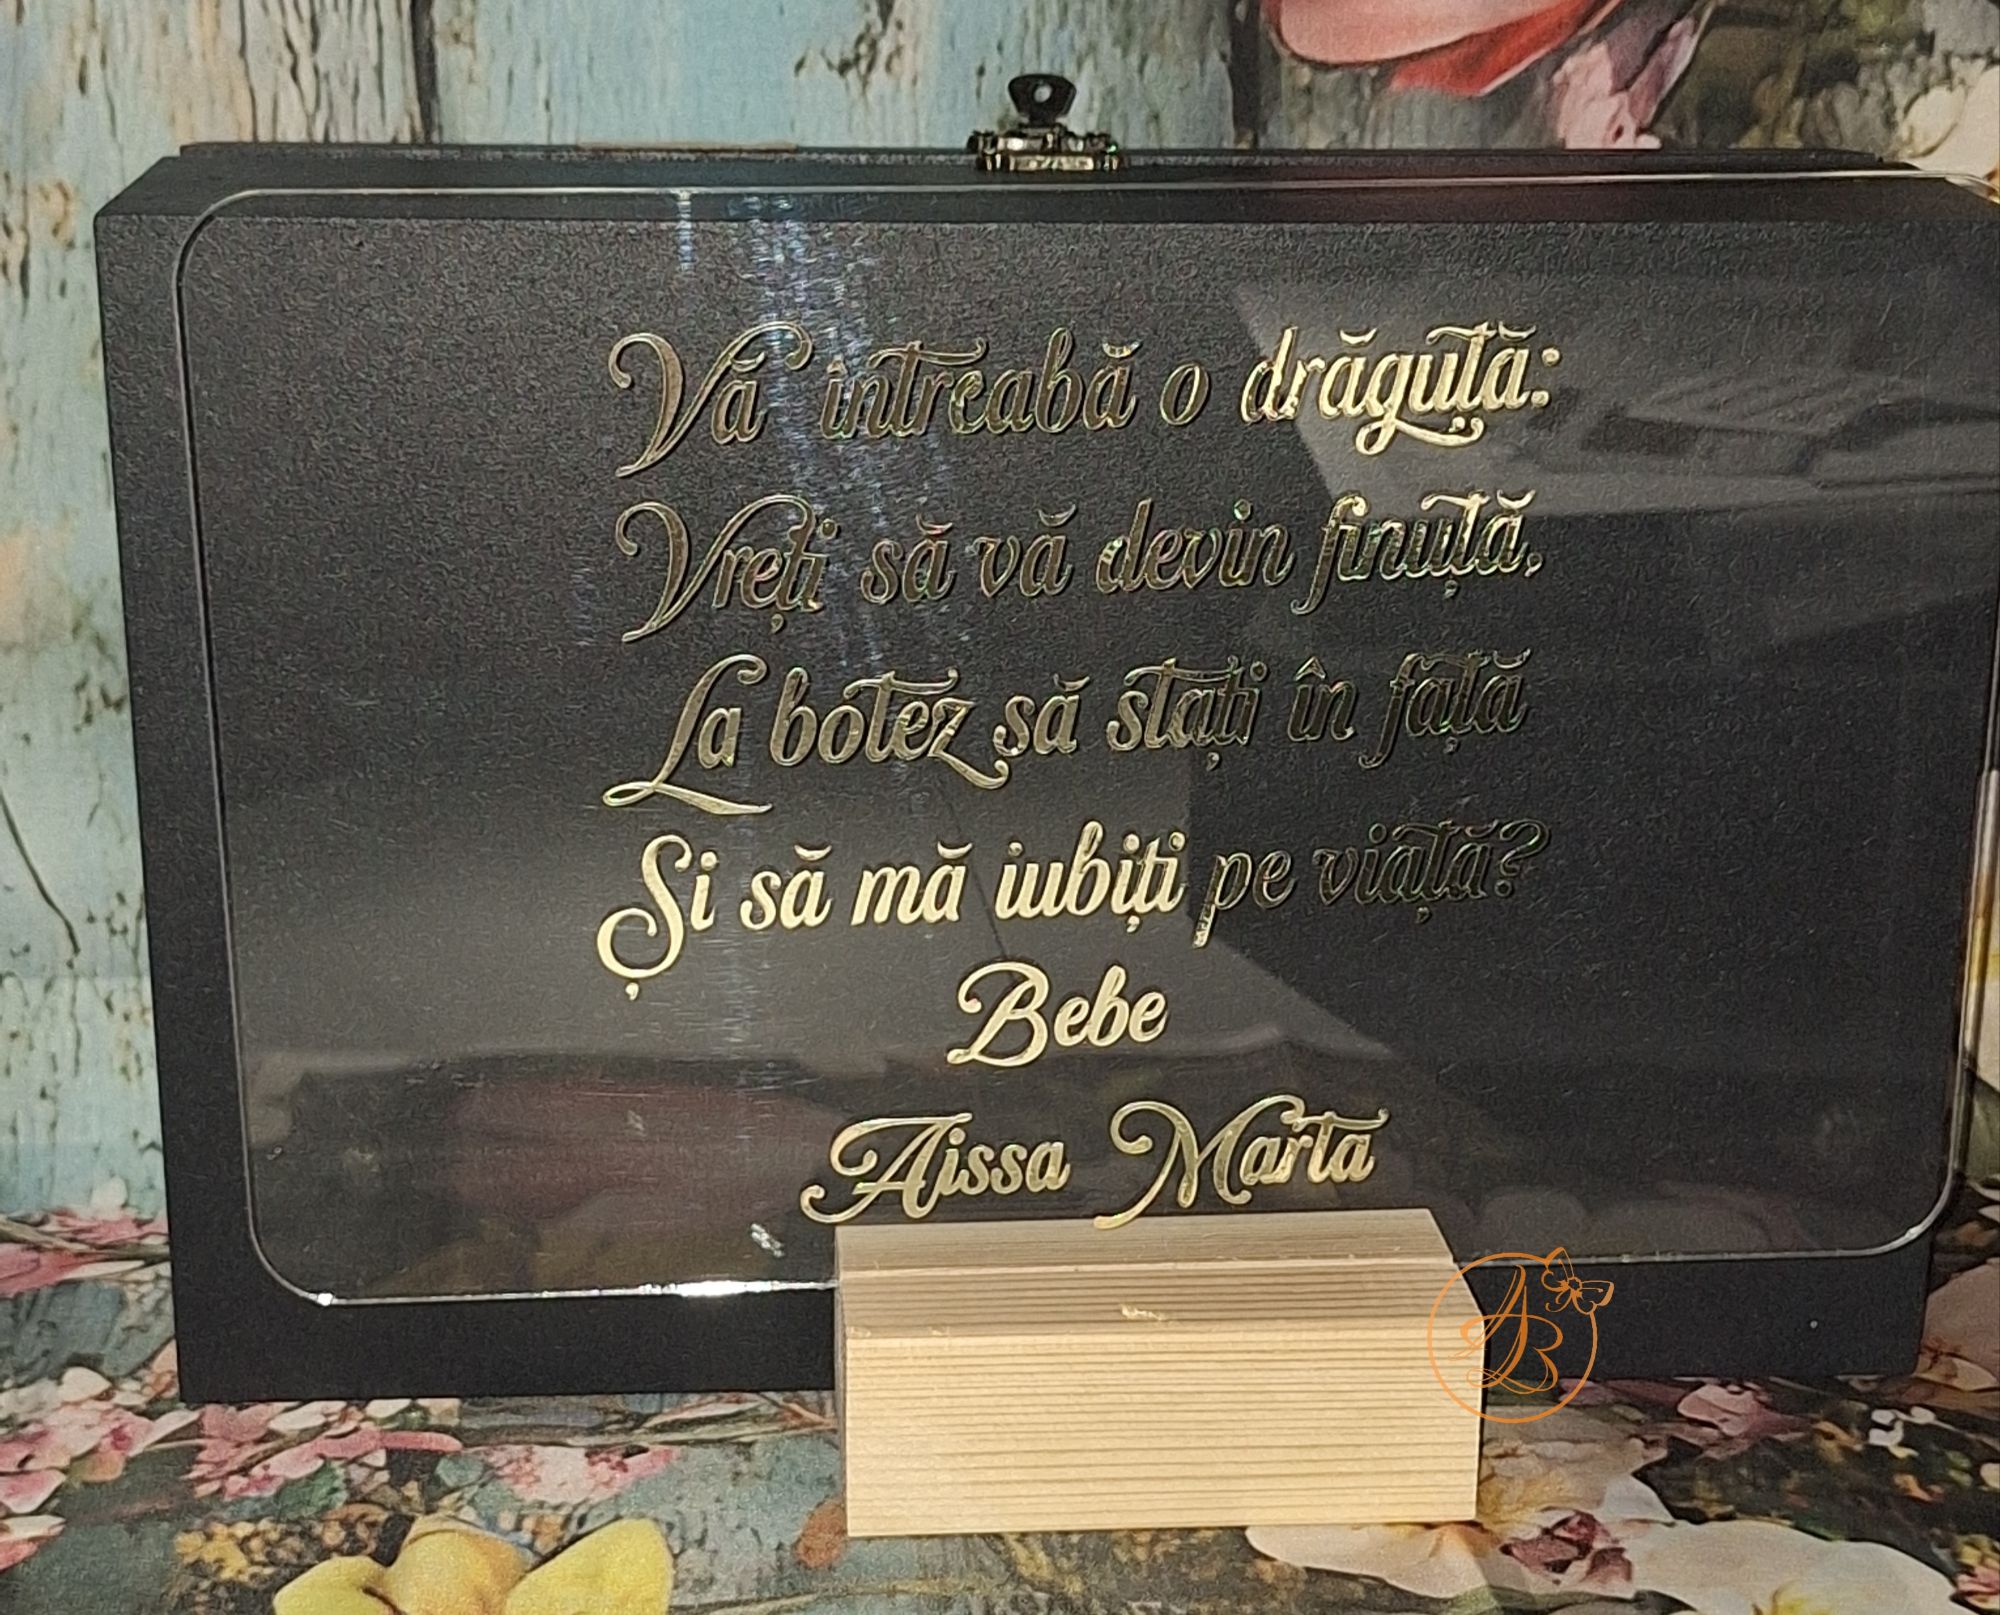 Vă întreabă o drăguță:
Vreți să vă devin finuță,
La botez să stați în față
Și să mă iubiți pe viață?
Bebe
Aissa Marta
AB